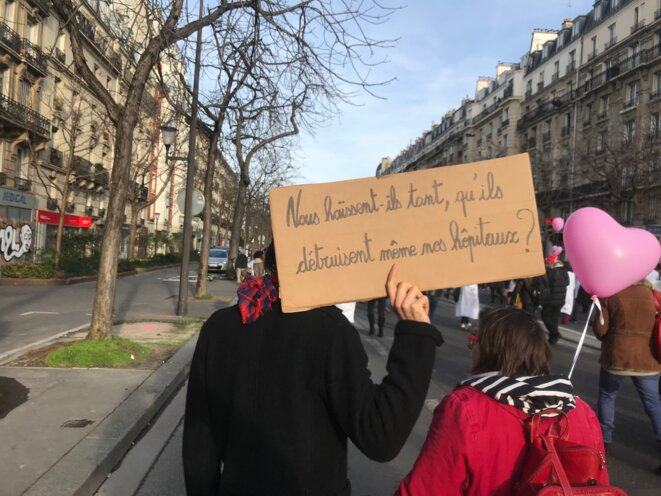 Nous haïssent-ils tant, qu'ils
détruisent même nos hôpitaux ?